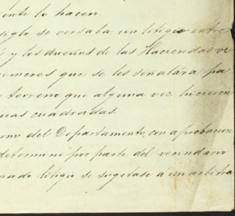 ente lo hacen.
siglo se versaba un litigio entre
i y los dueños de las Haciendas ve
que se les señalara pa
terreno que alguna vez hicieron
cuadradas.
del Departamento, con aprobacion
determinó por parte del vecindario
litigio se sugetase a un arbitra